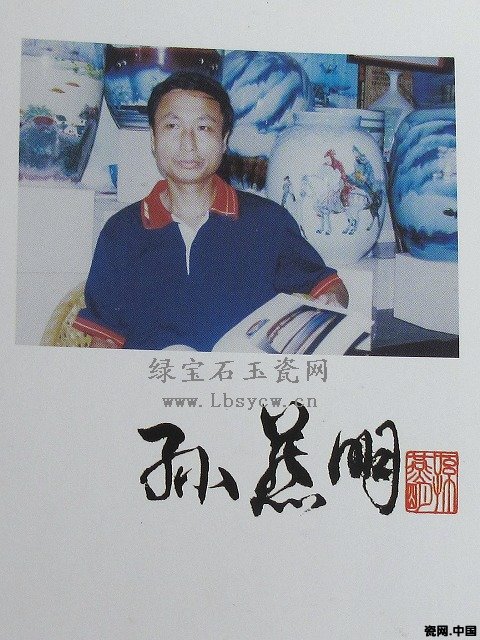 绿宝石玉瓷网
www.Lbsycw.cn
孙燕明
瓷网.中国